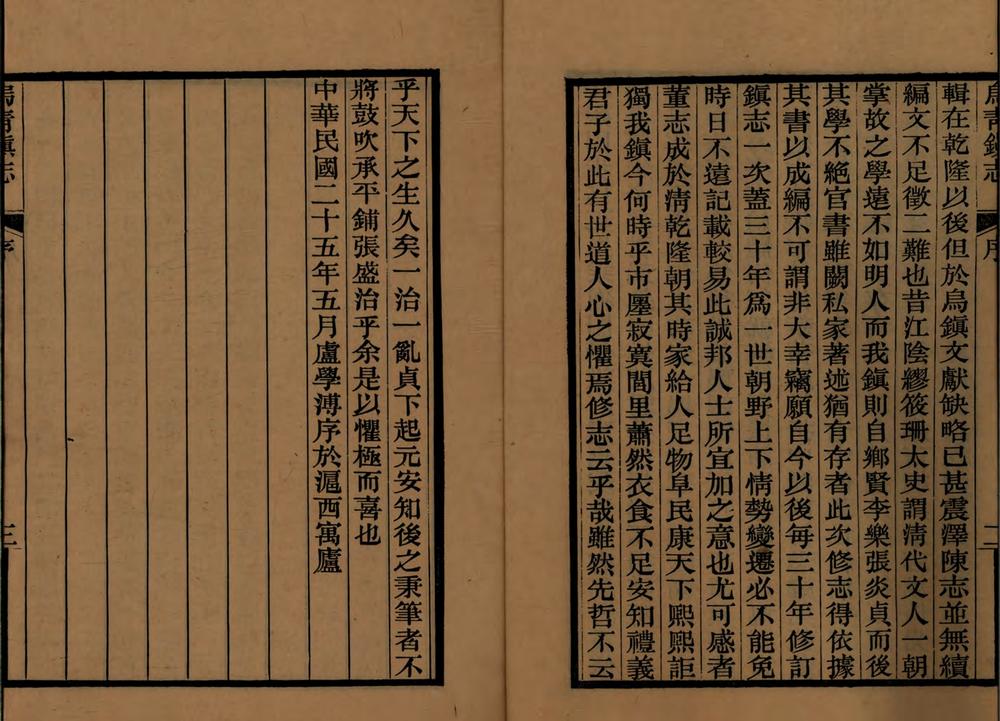 烏青鎮志
序
二
輯在乾隆以後但於烏鎮文獻缺略已甚震澤陳志並無續
編文不足徵二難也昔江陰繆筱珊太史謂清代文人一朝
掌故之學遠不如明人而我鎮則自鄉賢李樂張炎貞而後
其學不絕官書雖闕私家著述猶有存者此次修志得依據
其書以成編不可謂非大幸竊願自今以後每三十年修訂
鎮志一次蓋三十年爲一世朝野上下情勢變遷必不能免
時日不遠記載較易此誠邦人士所宜加之意也尤可感者
董志成於清乾隆朝其時家給人足物阜民康天下熙熙詎
獨我鎮今何時乎市廛寂寞閭里蕭然衣食不足安知禮義
君子於此有世道人心之懼焉修志云乎哉雖然先哲不云
乎天下之生久矣一治一亂貞下起元安知後之秉筆者不
將鼓吹承平鋪張盛治乎余是以懼極而喜也
中華民國二十五年五月盧學溥序於滬西寓廬
烏青鎮志
序
三